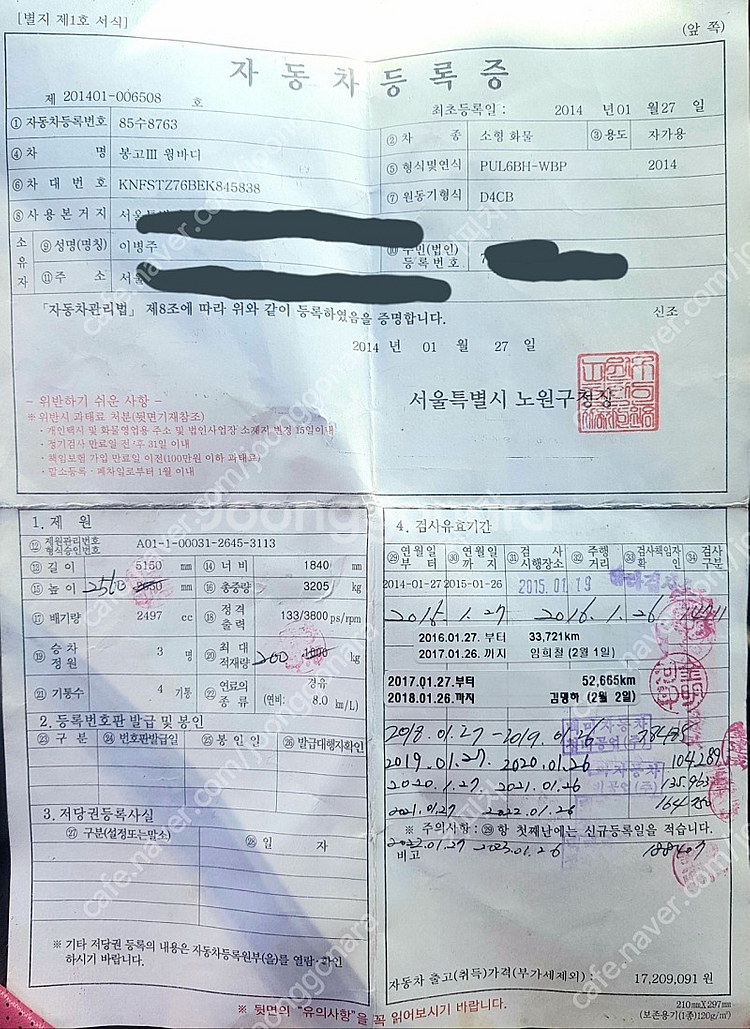 [별지 제1호 서식]
(앞 쪽)
자 동 차 등 록 증
제 201401-006508 호
최초등록일 : 2014 년 01 월 27 일
① 자동차등록번호 85수8763 ② 차 종 소형 화물 ③ 용도 자가용
④ 차 명 봉고III 윙바디 ⑤ 형식및연식 PUL6BH-WBP 2014
⑥ 차 대 번 호 KNFSTZ76BEK845838 ⑦ 원동기형식 D4CB
⑧ 사 용 본 거 지 서울
소유자 ⑨ 성명(명칭) 이병주 ⑩ 주민(법인)등록번호
⑪ 주 소 서울
「자동차관리법」 제8조에 따라 위와 같이 등록하였음을 증명합니다.
신조
2014 년 01 월 27 일
서울특별시 노원구청장
- 위반하기 쉬운 사항 -
※ 위반시 과태료 처분(뒷면기재참조)
· 개인택시 및 화물영업용 주소 및 법인사업장 소재지 변경 15일이내
· 정기검사 만료일 전·후 31일 이내
· 책임보험 가입 만료일 이전(100만원 이하 과태료)
· 말소등록 · 폐차일로부터 1월 이내
1. 제 원
⑫ 제원관리번호 형식승인번호 A01-1-00031-2645-3113
⑬ 길 이 5150 mm ⑭ 너 비 1840 mm
⑮ 높 이 2560 mm ⑯ 총중량 3205 kg
⑰ 배기량 2497 cc ⑱ 정격출력 133/3800 ps/rpm
⑲ 승차정원 3 명 ⑳ 최 대 적재량 200 kg
㉑ 기통수 4 기통 ㉒ 연료의 종류 경유 (연비: 8.0 km/L)
2. 등록번호판 발급 및 봉인
㉓ 구 분 ㉔ 번호판발급일 ㉕ 봉 인 일 ㉖ 발급대행자확인
3. 저당권등록사실
㉗ 구분(설정또는말소) ㉘ 일 자
※ 기타 저당권 등록의 내용은 자동차등록원부(을)를 열람·확인
하시기 바랍니다.
4. 검사유효기간
㉙ 연월일부터 ㉚ 연월일까지 ㉛ 검 사 시행장소 ㉜ 주행거리 ㉝ 검사책임자확인 ㉞ 검사구분
2014-01-27 2015-01-26 2015.01.19
2015. 1. 27 2016. 1. 26
2016.01.27. 부터 33,721km
2017.01.26. 까지 임희철 (2월 1일)
2017.01.27.부터 52,665km
2018.01.26.까지 김명하 (2월 2일)
2018.01.27 - 2019.01.26
2019.01.27. 2020.01.26 104289
2020.1.27 2021.01.26
2021.01.27 2022.01.26
※ 주의사항 : ㉙ 항 첫째난에는 신규등록일을 적습니다.
2022.01.27 2023.01.26
비고
자동차 출고(취득)가격(부가세제외) : 17,209,091 원
210㎜X297㎜
(보존용기(1종)120g/㎡)
※ 뒷면의 "유의사항"을 꼭 읽어보시기 바랍니다.
joonggonara
cafe.naver.com/joonggonara